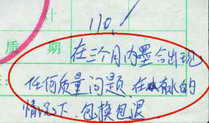 110.1
质 期
在三个月内墨合出现
任何质量问题在水有水的
情况下.包换包退